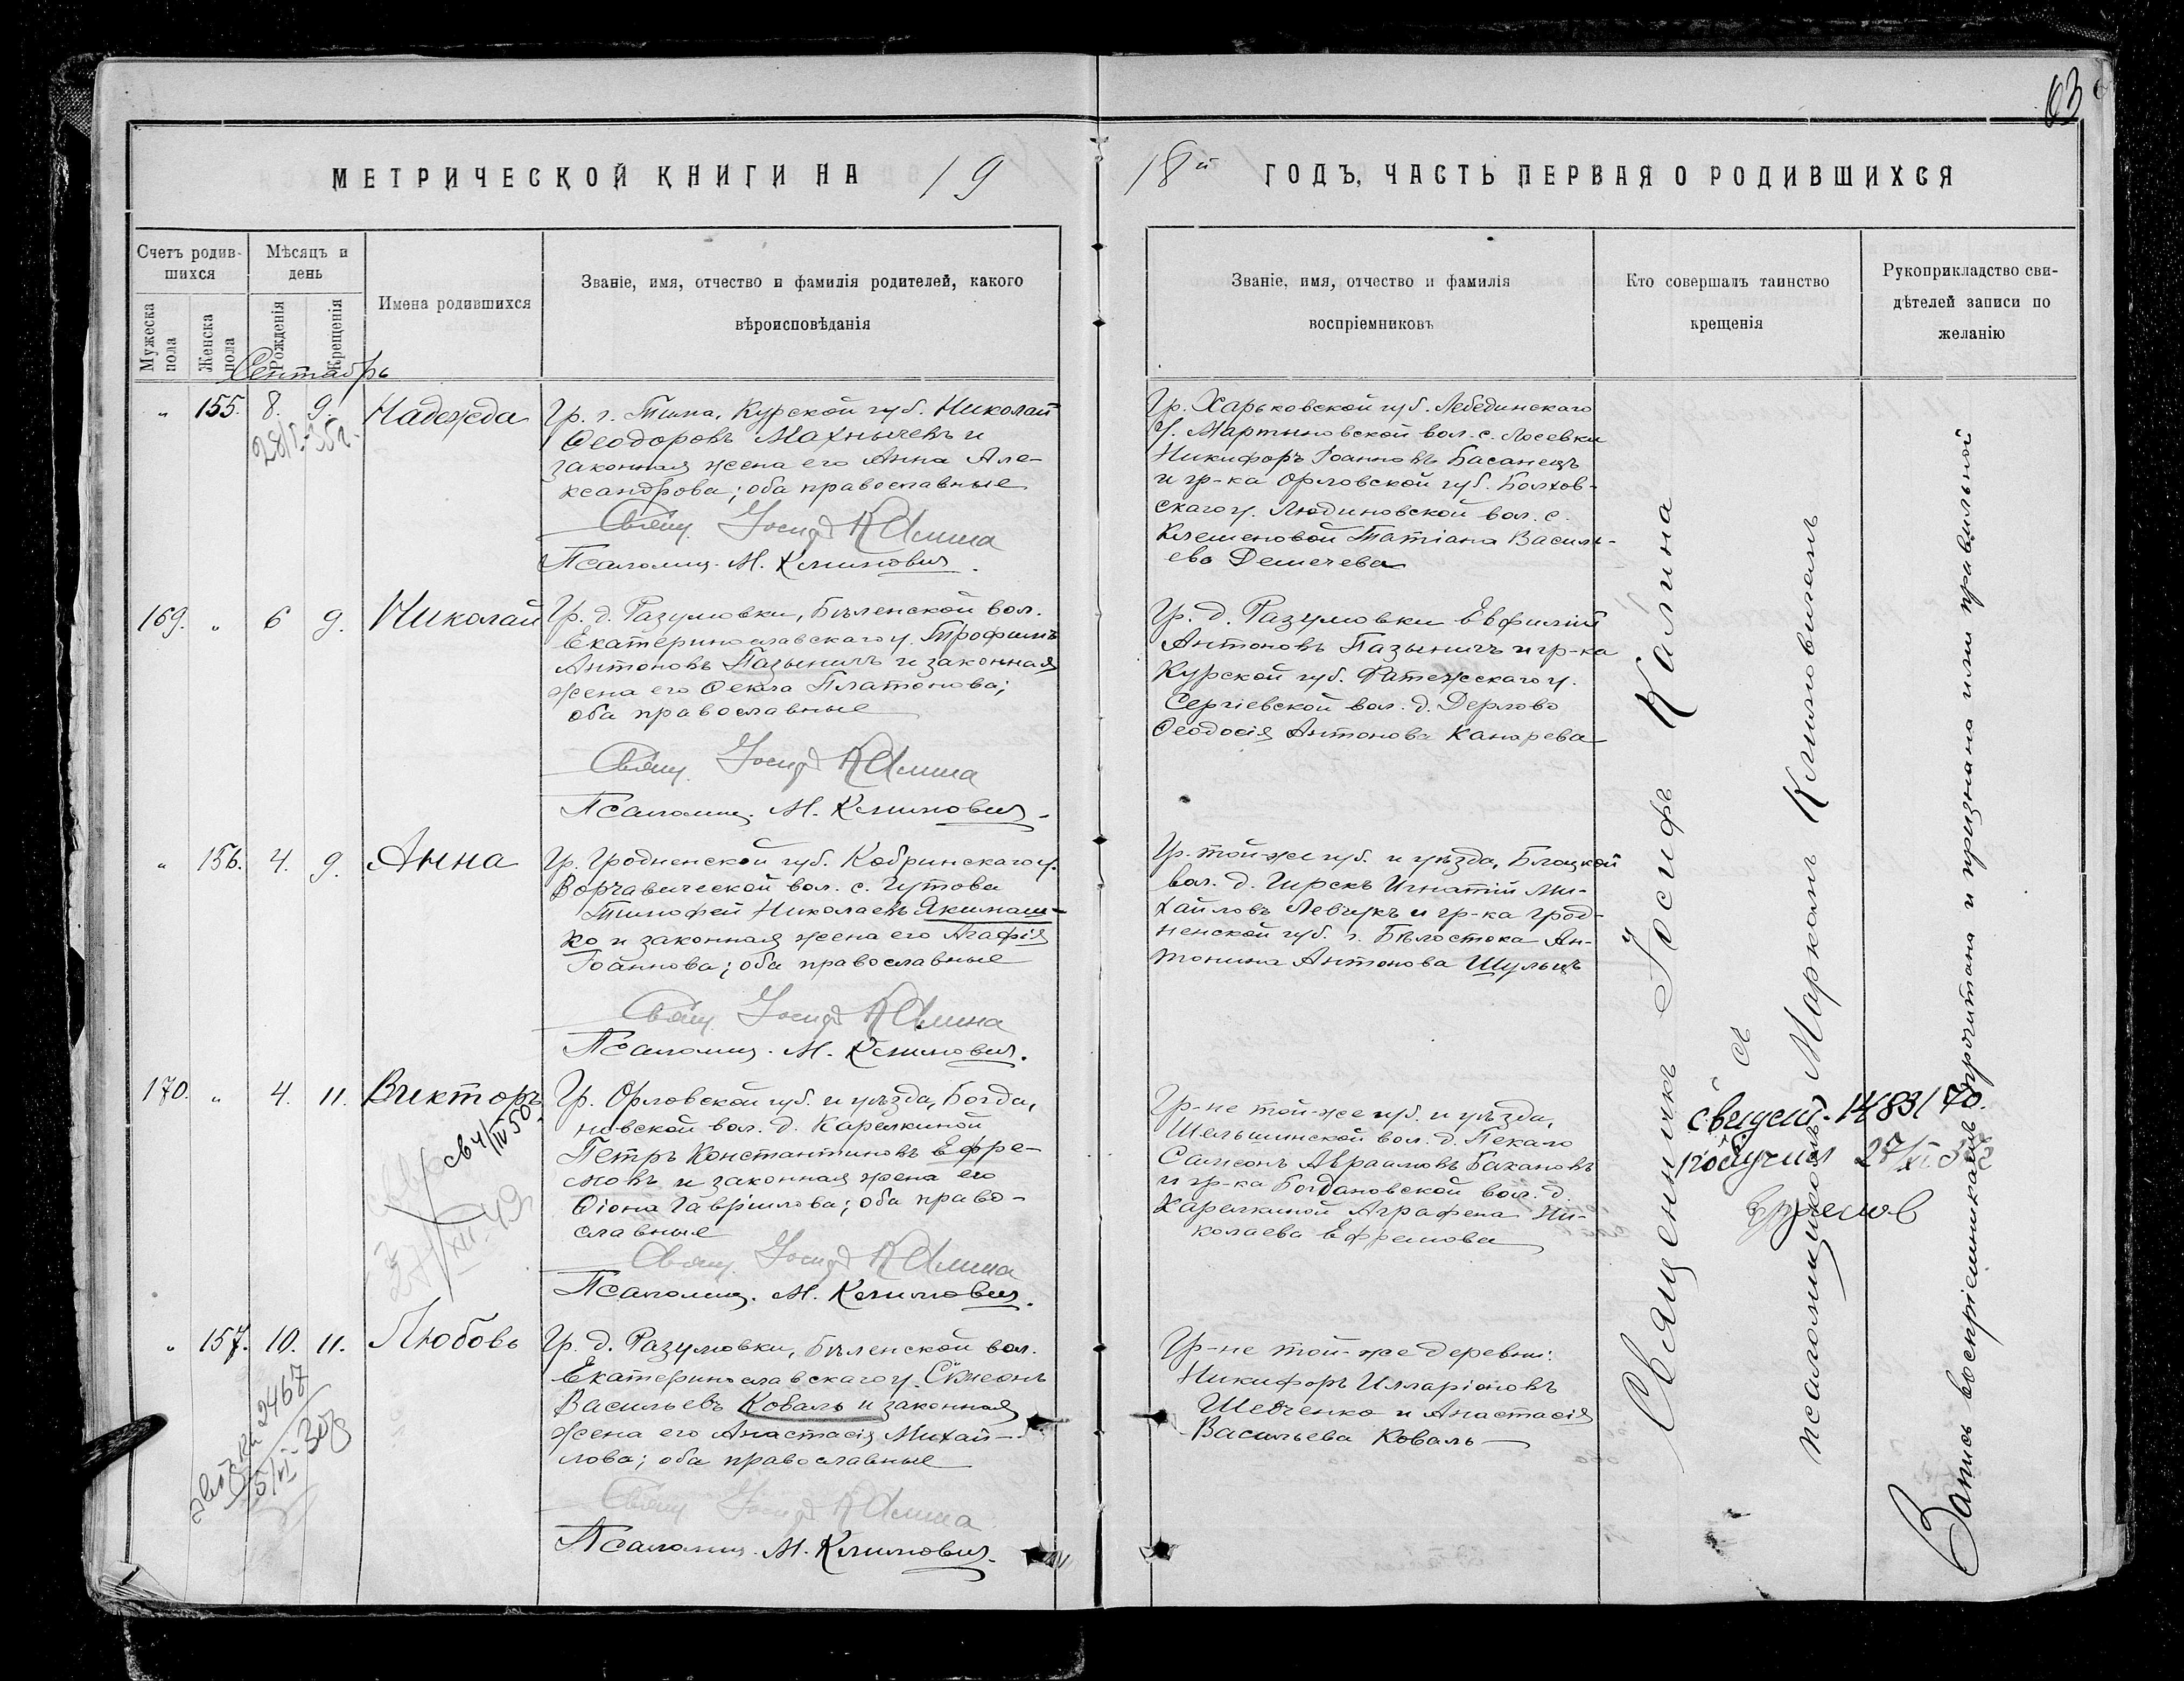 63
МЕТРИЧЕСКОЙ КНИГИ НА 19
18й ГОДЪ, ЧАСТЬ ПЕРВАЯ О РОДИВШИХСЯ
Счетъ родив-
шихся
Мужеска пола
Женска пола
Мѣсяцъ и
день
Рожденія
Крещенія
Имена родившихся
Званіе, имя, отчество и фамилія родителей, какого
вѣроисповѣданія
Званіе, имя, отчество и фамилія
воспріемниковъ
Кто совершалъ таинство
крещенія
Рукоприкладство сви-
дѣтелей записи по
желанію
Сентябрь
" 155. 8. 9. Надежда
Гр. г. Тима, Курской губ. Николай
Ѳеодоровъ Махнычевъ и
законная жена его Анна Але-
ксандрова; оба православные
Свящ. Іосиф Калина
Псаломщ. М. Климович.
Гр. Харьковской губ. Лебединскаго
у. Мартыновской вол. с. Лосевки
Никифоръ Іоанновъ Басанецъ
и гр-ка Орловской губ. Болхов-
скаго у. Людиновской вол. с.
Клеменовой Татіана Василь-
ева Демечева
169. " 6 9. Николай
Гр. д. Разумовки, Бѣленской вол.
Екатеринославскаго у. Трофимъ
Антоновъ Пазыничъ и законная
жена его Ѳекла Платонова;
оба православные
Свящ. Іосиф Калина
Псаломщ. М. Климович.
Гр. д. Разумовки Евфимій
Антоновъ Пазыничъ и гр-ка
Курской губ. Фатежскаго у.
Сергіевской вол. д. Дерлово
Ѳеодосія Антонова Канарева
" 156. 4. 9. Анна
Гр. Гродненской губ. Кобринскаго у.
Ворчавической вол. с. Гутова
Тимофей Николаевъ Якимаш-
ко и законная жена его Агафія
Іоаннова; оба православные
Свящ. Іосиф Калина
Псаломщ. М. Климович.
Гр. той-же губ. и уѣзда, Блоцкой
вол. д. Гирскъ Игнатій Ми-
хайловъ Левчукъ и гр-ка Грод-
ненской губ. г. Бѣлостока Ан-
тонина Антонова Шульцъ
170. " 4. 11. Викторъ
св 4/IV 50
27/XII 49
Гр. Орловской губ. и уѣзда, Богда-
новской вол. д. Карелкиной
Петръ Константиновъ Ефре-
мовъ и законная жена его
Ѳіона Гавріилова; оба право-
славные
Свящ. Іосиф Калина
Псаломщ. М. Климович.
Гр-не той-же губ. и уѣзда,
Шельшинской вол. д. Пекало
Самсонъ Авраамовъ Бахановъ
и гр-ка Богдановской вол. д.
Карелкиной Аграфена Ни-
колаева Ефремова
свидет. 1483170.
получил
Ефремов
" 157. 10. 11. Любовь
2467
5/VI 30
Гр. д. Разумовки, Бѣленской вол.
Екатеринославскаго у. Симеонъ
Васильевъ Коваль и законная
жена его Анастасія Михай-
лова; оба православные
Свящ. Іосиф Калина
Псаломщ. М. Климович.
Гр-не той-же деревни:
Никифоръ Илларіоновъ
Шевченко и Анастасія
Васильева Коваль
Священникъ Іосифъ Калина
съ
псаломщикомъ Маркомъ Климовичемъ
Запись воспріемниками прочитана и признана ими правильной